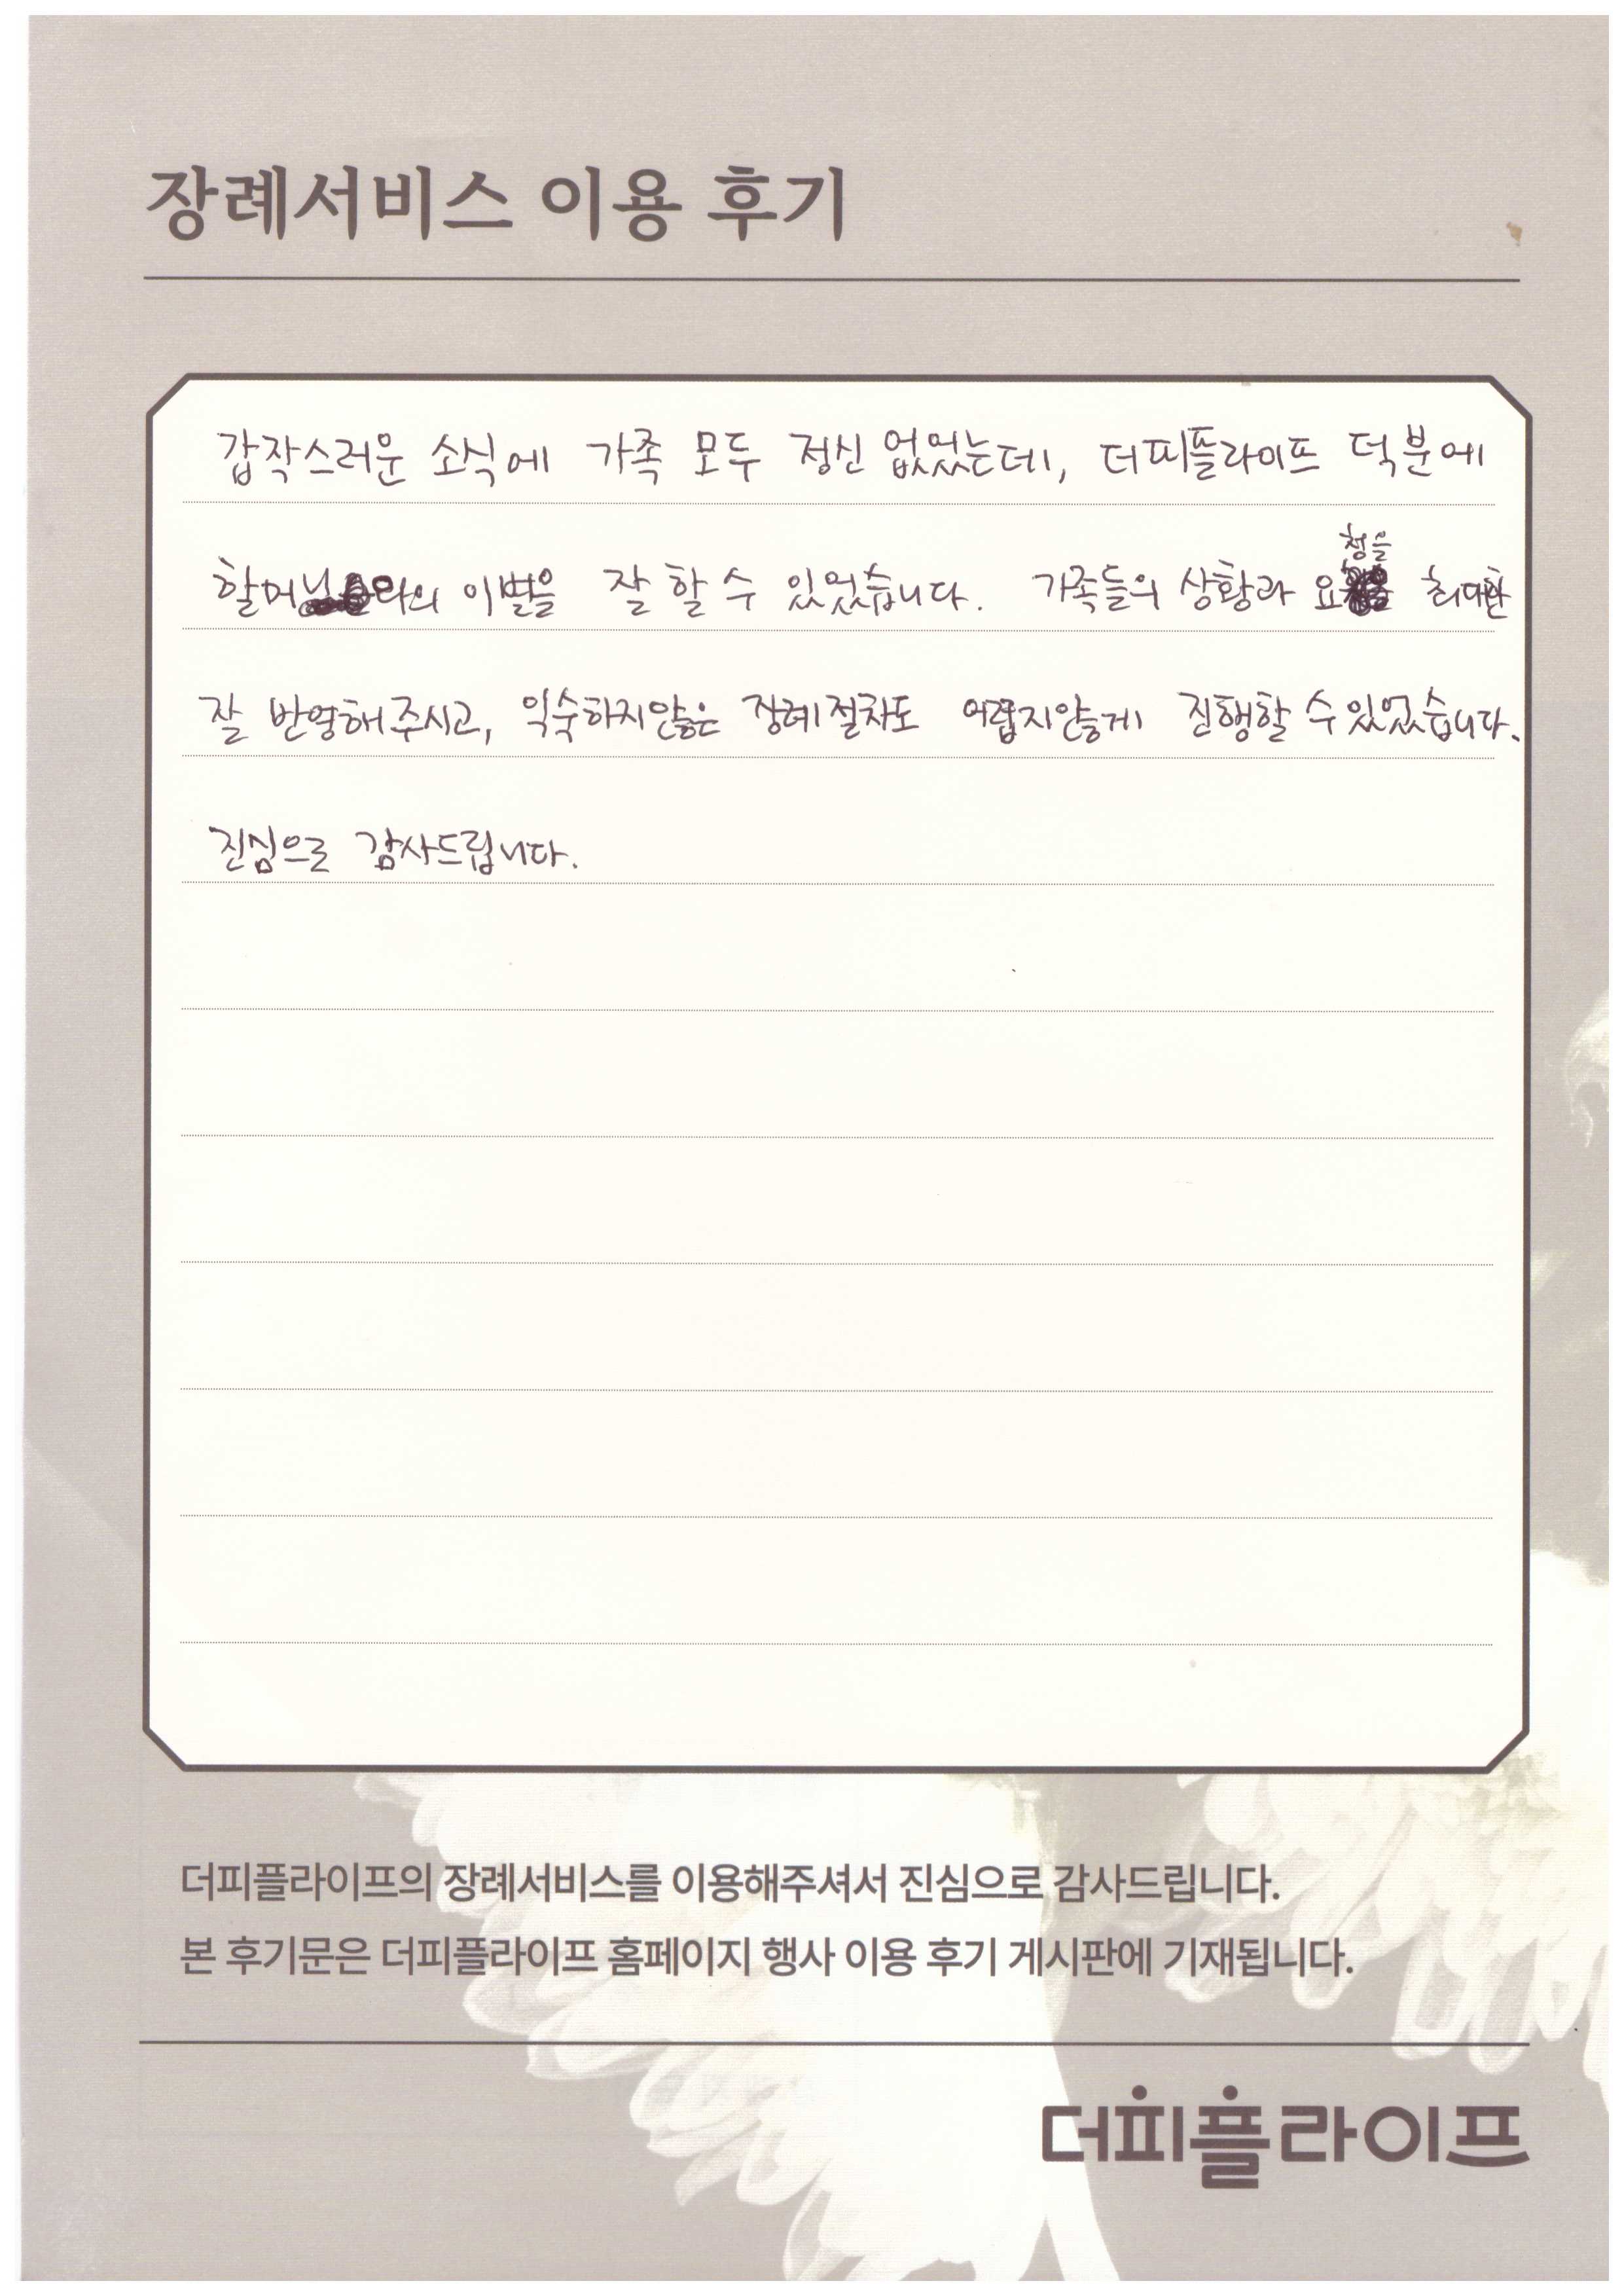 장례서비스 이용 후기
갑작스러운 소식에 가족 모두 정신 없었는데, 더피플라이프 덕분에
할머니와의 이별을 잘 할 수 있었습니다. 가족들의 상황과 요청을 최대한
잘 반영해주시고, 익숙하지않은 장례절차도 어렵지않게 진행할 수 있었습니다.
진심으로 감사드립니다.
더피플라이프의 장례서비스를 이용해주셔서 진심으로 감사드립니다.
본 후기문은 더피플라이프 홈페이지 행사 이용 후기 게시판에 기재됩니다.
더피플라이프